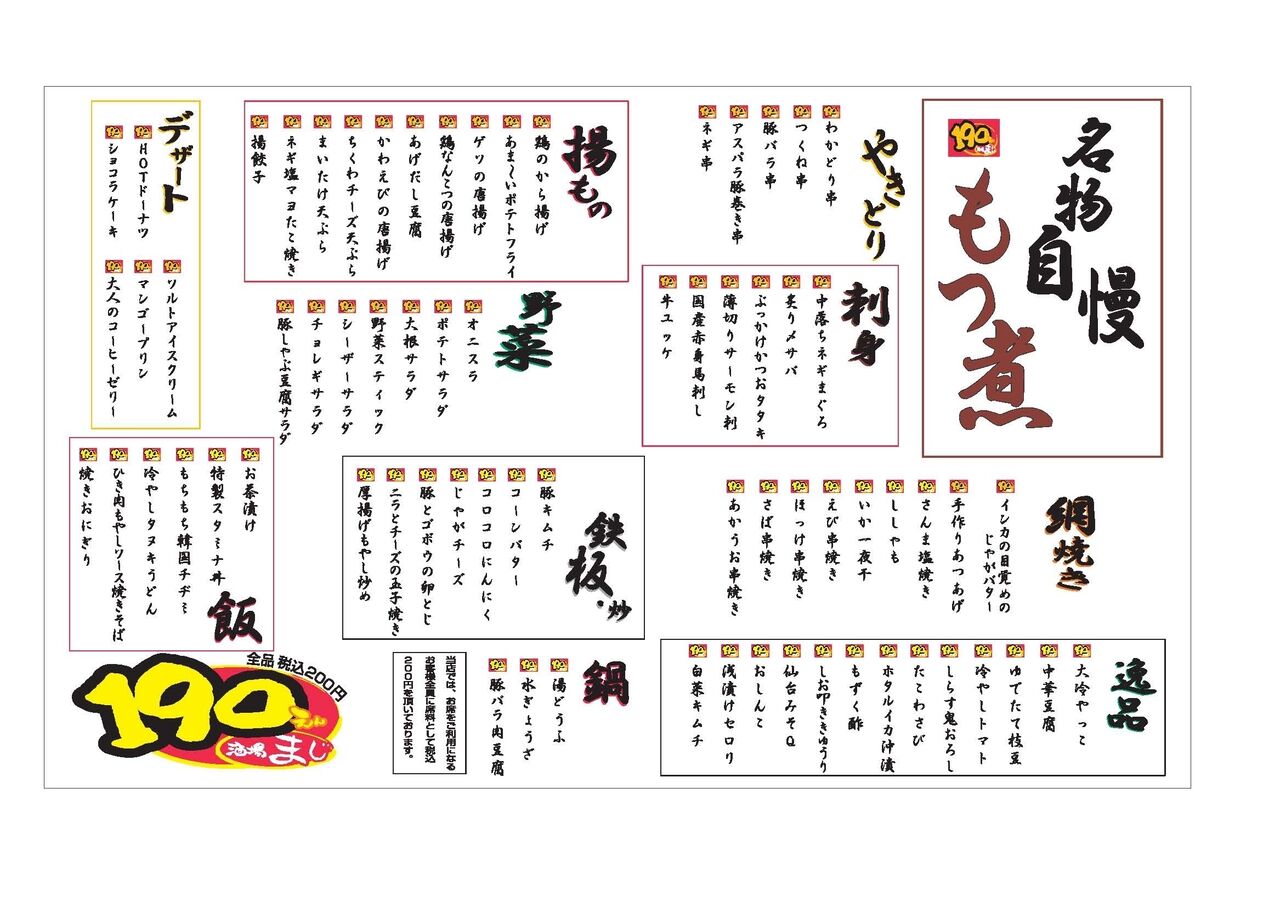 名物
自慢
もつ煮
190
やきとり
わかどり串
つくね串
豚バラ串
アスパラ豚巻き串
ネギ串
刺身
中落ちネギまぐろ
炙り〆サバ
ぶっかけかつおタタキ
薄切りサーモン刺
国産赤身馬刺し
牛ユッケ
揚もの
鶏のから揚げ
あま〜いポテトフライ
ゲソの唐揚げ
鶏なんこつの唐揚げ
あげだし豆腐
かわえびの唐揚げ
ちくわチーズ天ぷら
まいたけ天ぷら
ネギ塩マヨたこ焼き
揚餃子
野菜
オニスラ
ポテトサラダ
大根サラダ
野菜スティック
シーザーサラダ
チョレギサラダ
豚しゃぶ豆腐サラダ
デザート
HOTドーナツ
ショコラケーキ
ソルトアイスクリーム
マンゴープリン
大人のコーヒーゼリー
網焼き
インカの目覚めの
じゃがバター
手作りあつあげ
さんま塩焼き
ししゃも
いか一夜干
えび串焼き
ほっけ串焼き
さば串焼き
あかうお串焼き
鉄板・炒
豚キムチ
コーンバター
コロコロにんにく
じゃがチーズ
豚とゴボウの卵とじ
ニラとチーズの玉子焼き
厚揚げもやし炒め
飯
お茶漬け
特製スタミナ丼
もちもち韓国チヂミ
冷やしタヌキうどん
ひき肉もやしソース焼きそば
焼きおにぎり
逸品
大冷やっこ
中華豆腐
ゆでたて枝豆
冷やしトマト
しらす鬼おろし
たこわさび
ホタルイカ沖漬
もずく酢
しお叩ききゅうり
仙台みそQ
おしんこ
浅漬けセロリ
白菜キムチ
鍋
湯どうふ
水ぎょうざ
豚バラ肉豆腐
当店では、お席をご利用になる
お客様全員に席料として税込
200円を頂いております。
全品 税込200円
190えん
酒場 まじ